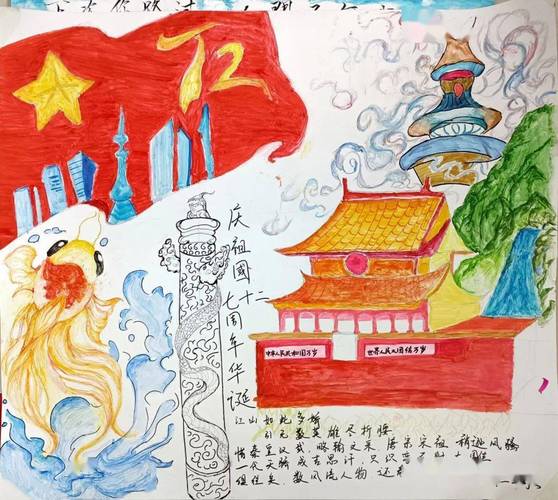 庆祖國七十二周年华诞
中华人民共和国万岁
世界人民大团结万岁
江山如此多娇
引无数英雄尽折腰
惜秦皇汉武，略输文采 唐宗宋祖 稍逊风骚
一代天骄 成吉思汗，只识
俱往矣 数风流人物 还看